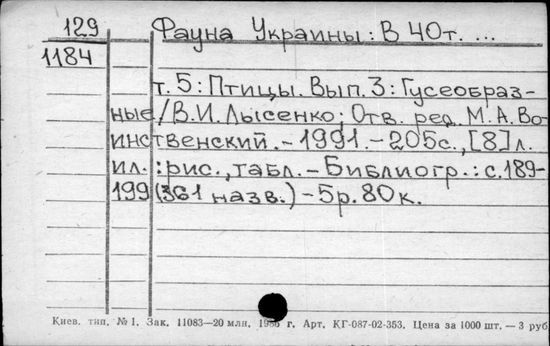 129 Фауна Украины: В 40т. ...
1184
т. 5: Птицы. Вып. 3: Гусеобраз-
ные/В.И. Лысенко; Отв. ред. М.А. Во-
инственский. - 1991. - 205с., [8] л.
ил.: рис., табл. - Библиогр.: с.189-
199 (361 назв.) - 5р. 80к.
Киев. тип. №1. Зак. 11083—20 млн. 1986 г. Арт. КГ-087-02-353. Цена за 1000 шт. — 3 руб